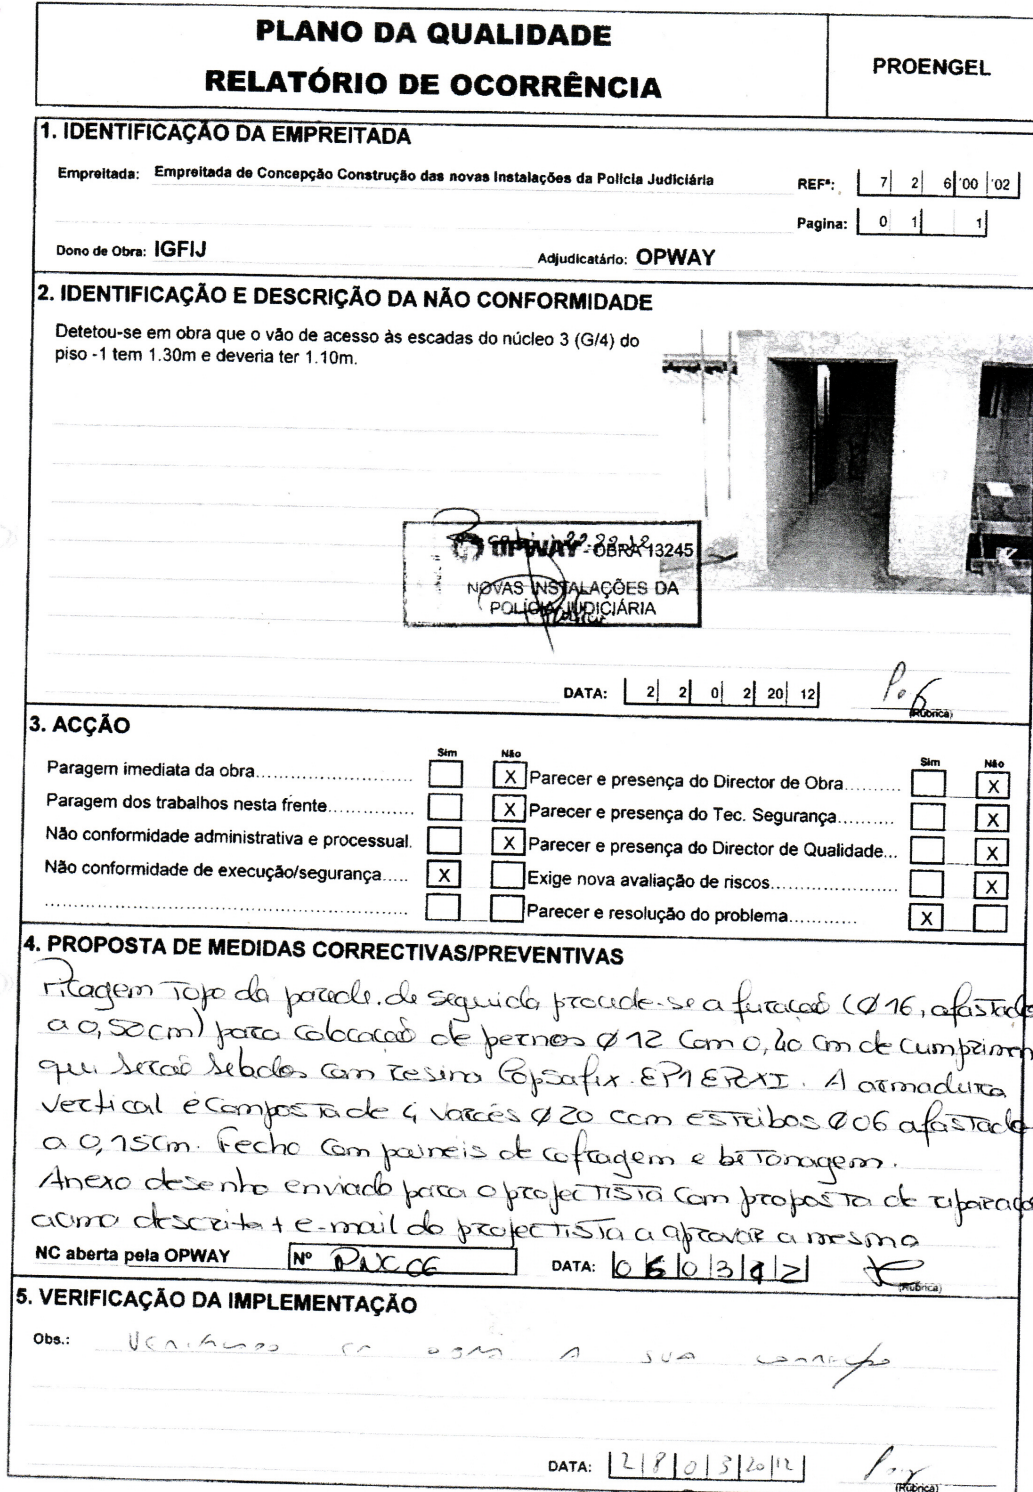 PLANO DA QUALIDADE
RELATÓRIO DE OCORRÊNCIA
PROENGEL
1. IDENTIFICAÇÃO DA EMPREITADA
Empreitada: Empreitada de Concepção Construção das novas Instalações da Polícia Judiciária
REFª: 7 2 6 '00 '02
Pagina: 0 1 1
Dono de Obra: IGFIJ
Adjudicatário: OPWAY
2. IDENTIFICAÇÃO E DESCRIÇÃO DA NÃO CONFORMIDADE
Detetou-se em obra que o vão de acesso às escadas do núcleo 3 (G/4) do
piso -1 tem 1.30m e deveria ter 1.10m.
OPWAY - OBRA 13245
NOVAS INSTALAÇÕES DA
POLÍCIA JUDICIÁRIA
DATA: 2 2 0 2 20 12
(Rúbrica)
3. ACÇÃO
Sim Não
Sim Não
Paragem imediata da obra........................ X
Parecer e presença do Director de Obra.......... X
Paragem dos trabalhos nesta frente............. X
Parecer e presença do Tec. Segurança.......... X
Não conformidade administrativa e processual. X
Parecer e presença do Director de Qualidade... X
Não conformidade de execução/segurança..... X
Exige nova avaliação de riscos....................... X
Parecer e resolução do problema............ X
4. PROPOSTA DE MEDIDAS CORRECTIVAS/PREVENTIVAS
Picagem Topo da parede. de seguida procede-se a furacaõ (Ø16, afastado
a 0,50cm) para colocacaõ de pernos Ø12 com 0,40 cm de cumprimen
que seraõ selados com resina Copsafix. A armadura
vertical é composta de 4 varões Ø20 com estribos Ø06 afastado
a 0,15cm. Fecho com paineis de cofragem e betonagem.
Anexo desenho enviado para o projectista com proposta de reparaçã
acima descrita + e-mail do projectista a aprovar a mesma
NC aberta pela OPWAY
Nº PNC06
DATA: 0 6 0 3 1 2
(Rúbrica)
5. VERIFICAÇÃO DA IMPLEMENTAÇÃO
Obs.: Verificado em obra a sua correção
DATA: 2 8 0 3 20 12
(Rúbrica)